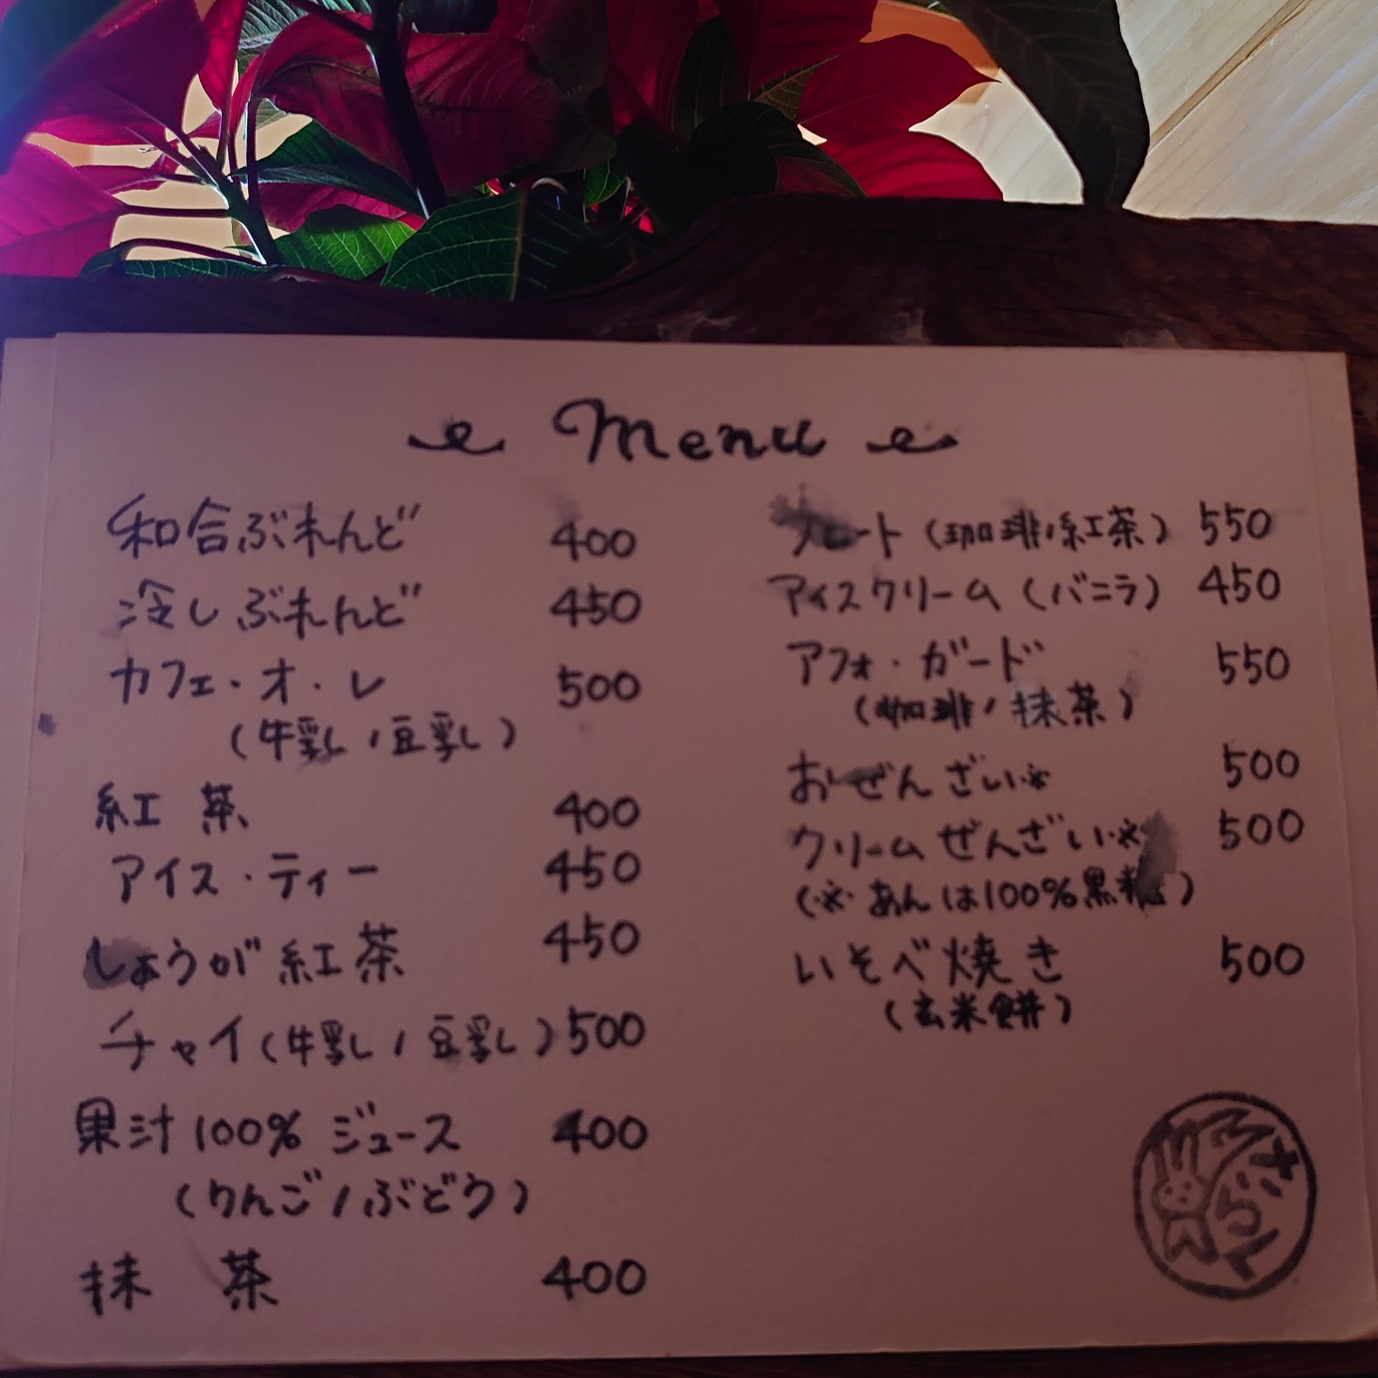 Menu
和合ぶれんど 400
冷しぶれんど 450
カフェ・オ・レ 500
(牛乳/豆乳)
紅茶 400
アイス・ティー 450
しょうが紅茶 450
チャイ(牛乳/豆乳) 500
果汁100% ジュース 400
(りんご/ぶどう)
抹茶 400
(珈琲/紅茶) 550
アイスクリーム(バニラ) 450
アフォ・ガード 550
(珈琲/抹茶)
おぜんざい※ 500
クリームぜんざい※ 500
(※あんは100%黒糖)
いそべ焼き 500
(玄米餅)